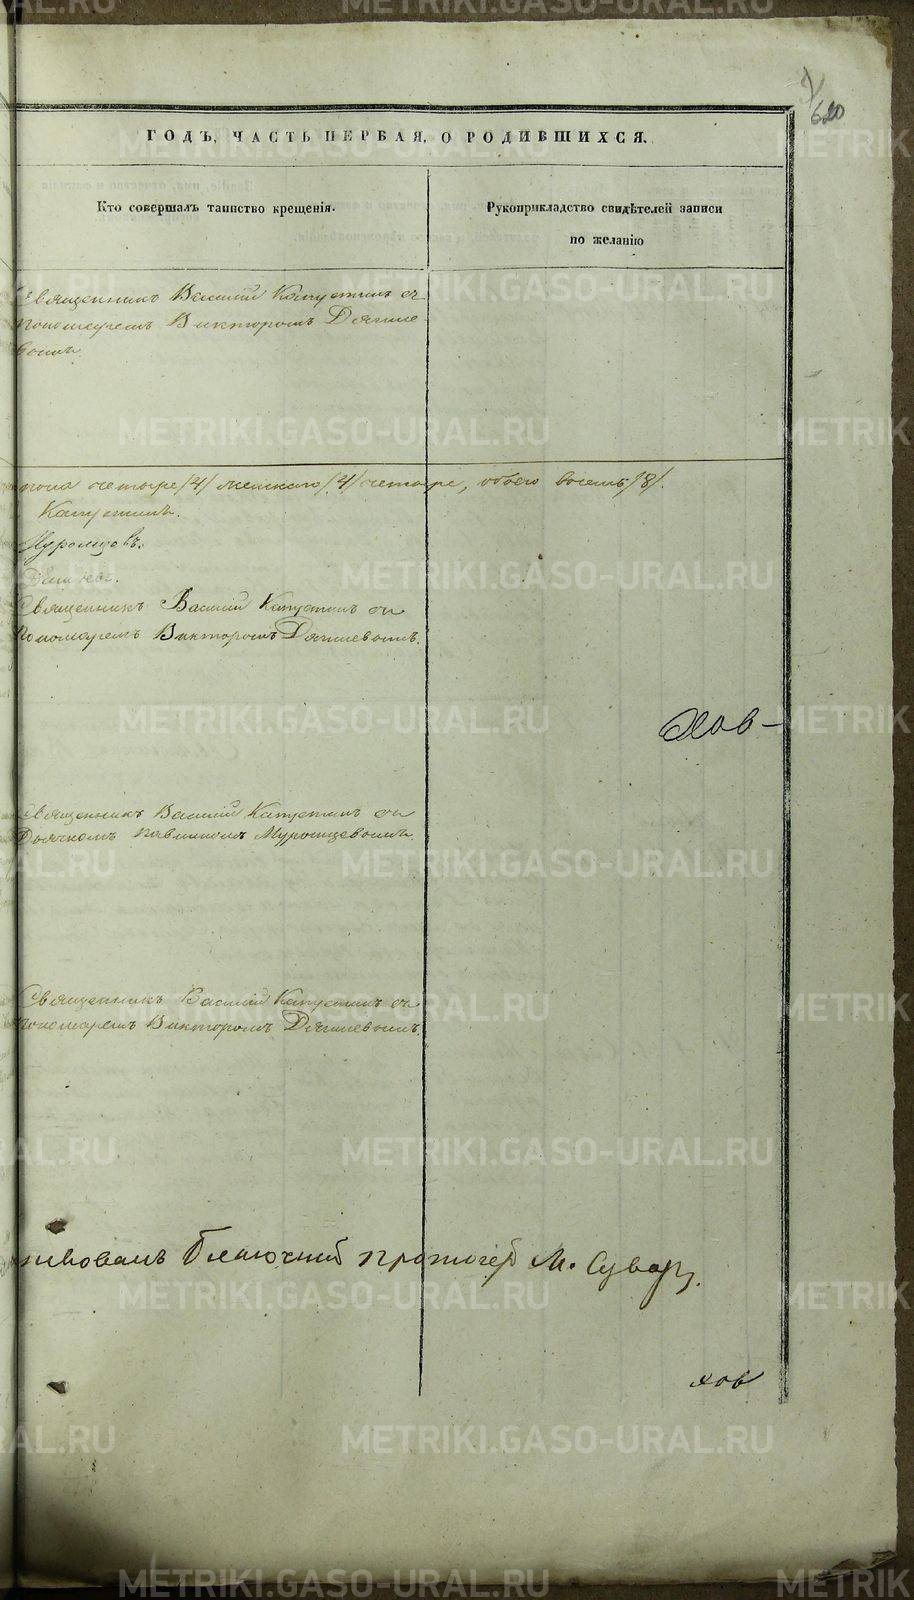 620
ГОДЪ, ЧАСТЬ ПЕРВАЯ, О РОДИВШИХСЯ.
Кто совершалъ таинство крещенія.
Рукоприкладство свидѣтелей записи
по желанію
Священникъ Василій Капустинъ съ
пономаремъ Викторомъ
пола четыре /4/ женскаго /4/ четыре, обоего восемь /8/.
Капустинъ.
Муромцовъ.
Священникъ Василій Капустинъ съ
пономаремъ Викторомъ
хов-
Священникъ Василій Капустинъ съ
Дьячкомъ Павлиномъ Муромцевымъ.
Священникъ Василій Капустинъ съ
пономаремъ Викторомъ
протоіер М.
хов
METRIKI.GASO-URAL.RU